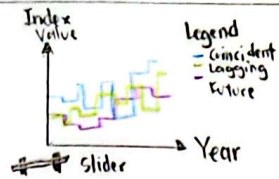 Index
Value
Legend
Coincident
Lagging
Future
Year
Slider